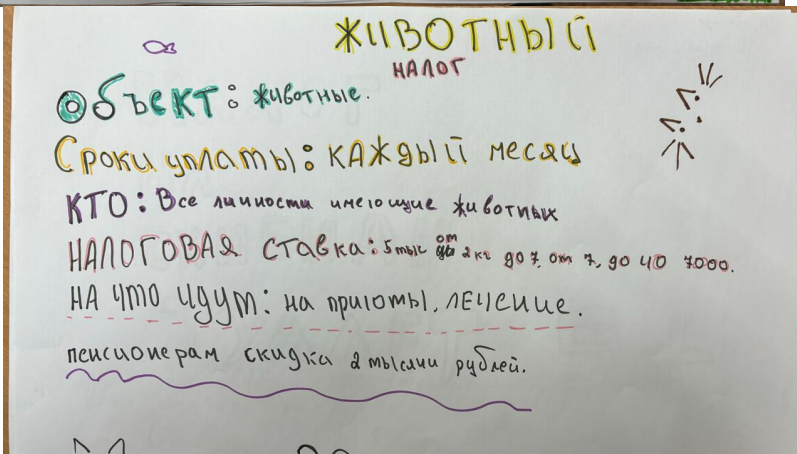 ЖИВОТНЫЙ
НАЛОГ
Объект: животные.
Сроки уплаты: каждый месяц
КТО: Все личности имеющие животных
НАЛОГОВАЯ СТАВКА: 5 тыс от 2 кг до 7, от 7, до 40 7000.
НА ЧТО ИДУТ: на приюты, лечение.
пенсионерам скидка 2 тысячи рублей.